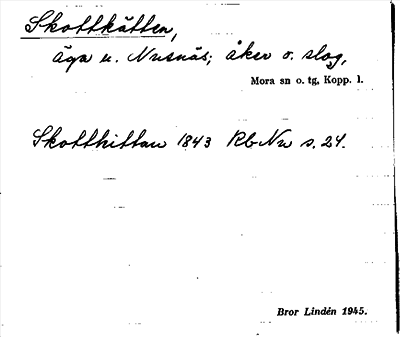 Skottkätten,
äga u. Nusnäs; åker o. slog,
Mora sn o. tg, Kopp. l.
Skotthittan 1843 Rb Nu s. 24.
Bror Lindén 1945.